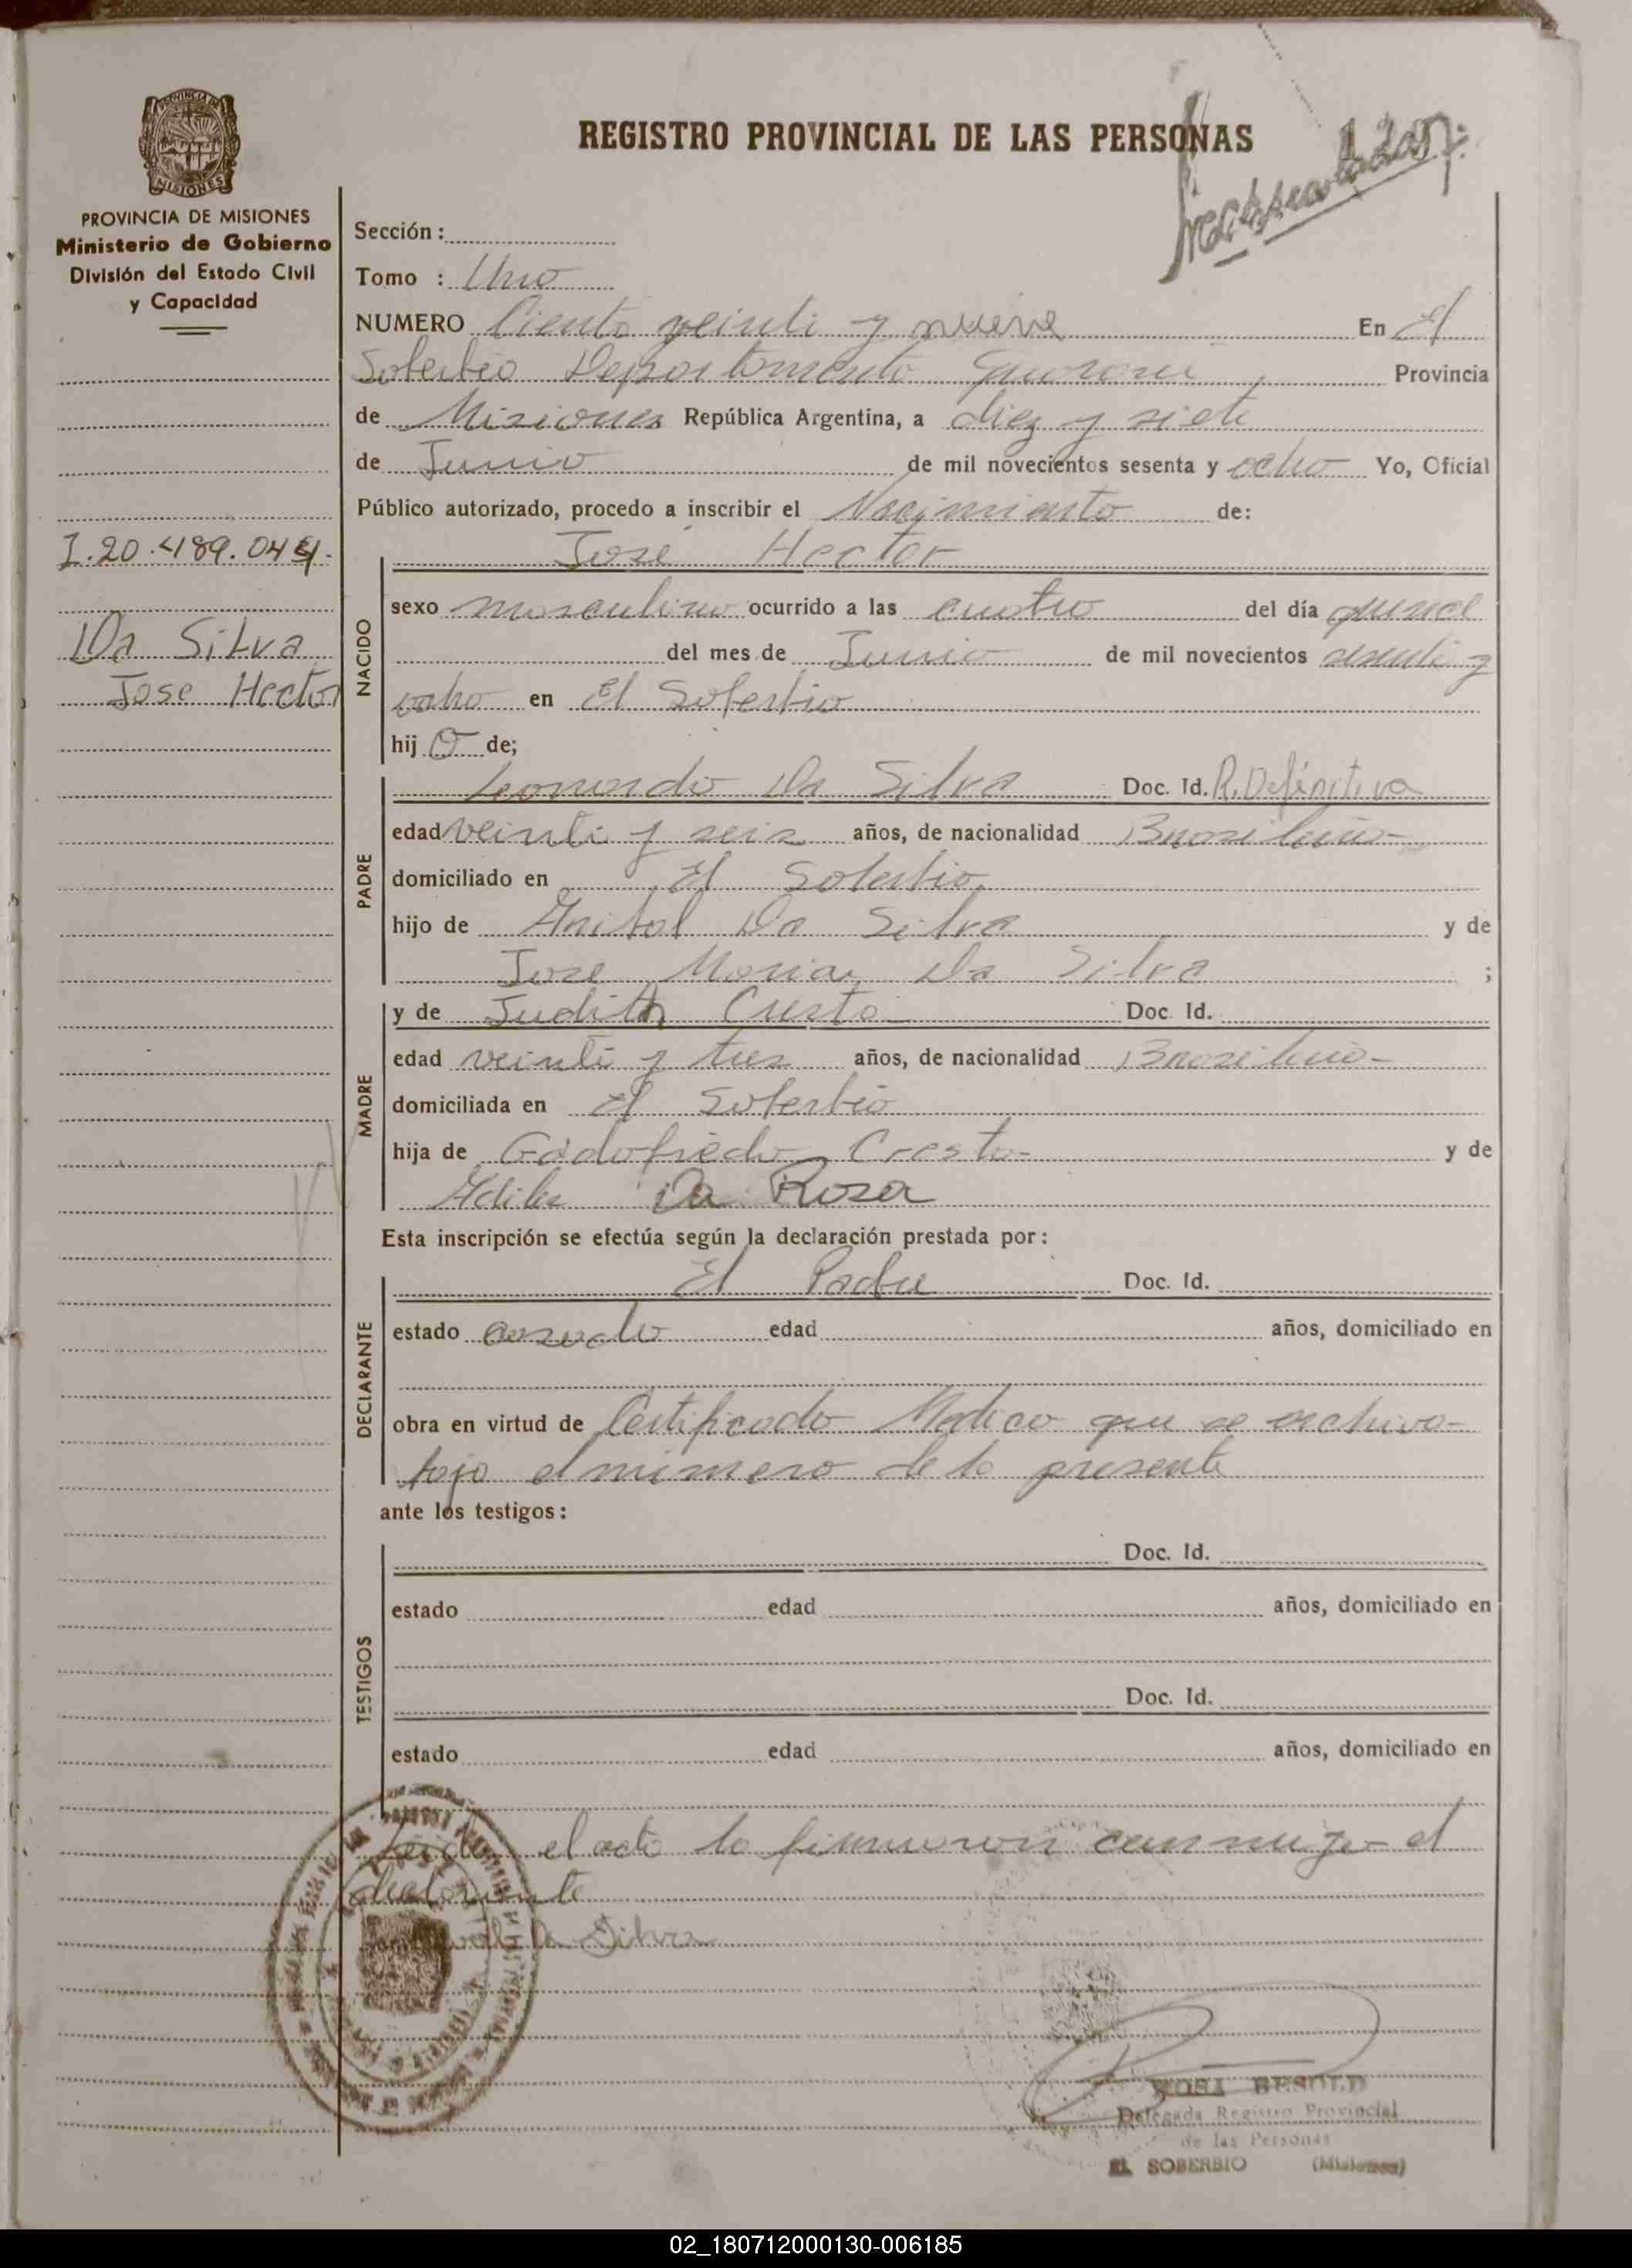 PROVINCIA DE MISIONES
Ministerio de Gobierno
División del Estado Civil
y Capacidad
I. 20.489.044.
Da Silva
Jose Hector
REGISTRO PROVINCIAL DE LAS PERSONAS
Sección :
Tomo : Uno
NUMERO Ciento veinti y nueve En El
Soberbio Departamento Guarani Provincia
de Misiones República Argentina, a diez y siete
de Junio de mil novecientos sesenta y ocho Yo, Oficial
Público autorizado, procedo a inscribir el Nacimiento de:
NACIDO
José Hector
sexo masculino ocurrido a las cuatro del día quince
del mes de Junio de mil novecientos sesenti y
ocho en El Soberbio
hij o de;
PADRE
Leonardo Da Silva Doc. Id. R. Definitiva
edad veinti y seis años, de nacionalidad Brasileño-
domiciliado en El Soberbio
hijo de Anibal Da Silva y de
Jose Maria Da Silva ;
MADRE
y de Judith Cresto Doc. Id.
edad veinti y tres años, de nacionalidad Brasileño-
domiciliada en El Soberbio
hija de Godofredo Cresto- y de
Da Rosa
Esta inscripción se efectúa según la declaración prestada por :
DECLARANTE
El Padre Doc. Id.
estado casado edad años, domiciliado en
obra en virtud de Certificado Medico que se archiva-
bajo el número de la presente
ante los testigos :
TESTIGOS
Doc. Id.
estado edad años, domiciliado en
Doc. Id.
estado edad años, domiciliado en
Leida el acta la firmaron conmigo el
declarante
Da Silva
ROSA BESOLD
Delegada Registro Provincial
de las Personas
EL SOBERBIO (Misiones)
02_180712000130-006185